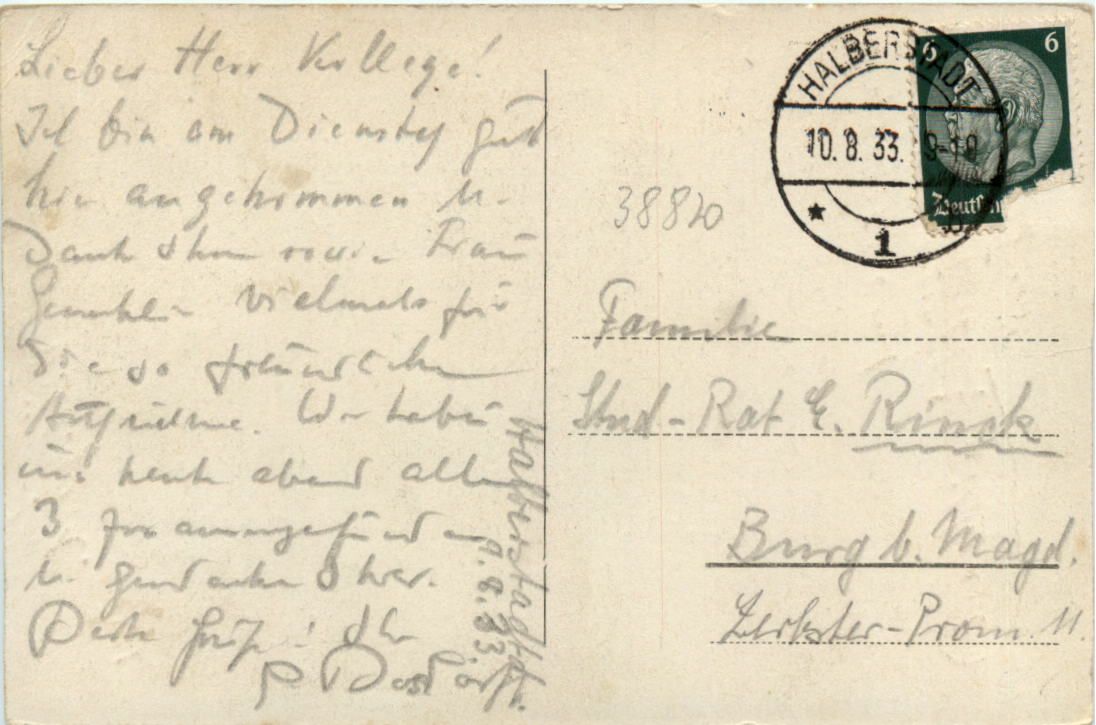 Lieber Herr Kollege!
Ich bin am Dienstag gut
hier angekommen u.
Danke Ihnen sowie Frau
Gemahlin vielmals für
die so freundliche
Aufnahme. Wir haben
uns heute abend alle
3 zusammengefunden
u. gedenken Ihrer.
Beste Grüße! Ihr
Halberstadt
9.8.33.
38820
HALBERSTADT
10.8.33. 9-10
* 1
6 6
Deutsch
Familie
Stud-Rat E. Rinck
Burg b. Magd.
Zerbster-Prom. 11.